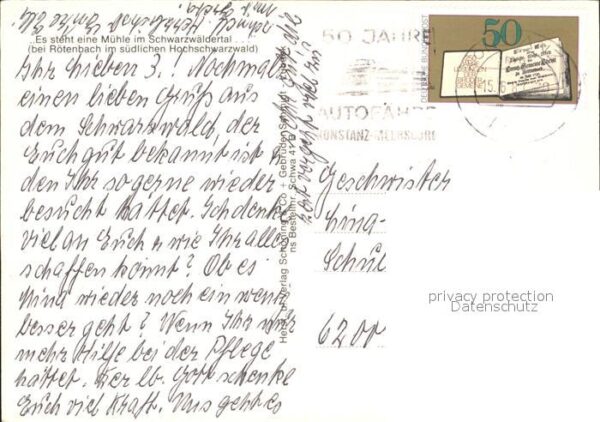 „Es steht eine Mühle im Schwarzwäldertal . . .“
(bei Rötenbach im südlichen Hochschwarzwald)
Ihr lieben 3.! Nochmals
einen lieben Gruß aus
dem Schwarzwald, der
Euch gut bekannt ist u.
den Ihr so gerne wieder
besucht hättet. Ich denke
viel an Euch u wie Ihr alles
schaffen könnt? Ob es
Lina wieder noch ein wenig
besser geht? Wenn Ihr nur
mehr Hilfe bei der Pflege
hättet. Der lb. Gott schenke
Euch viel Kraft. Uns geht es
Zeit vergeht viel zu
Verlag Schöning & Co + Gebrüder Schmidt
Bestellnr. Schwa 41
50
DEUTSCHE BUNDESPOST
50 JAHRE
AUTOFÄHRE
KONSTANZ-MEERSBURG
Geschwister
Lina
Schul
6200
privacy protection
Datenschutz